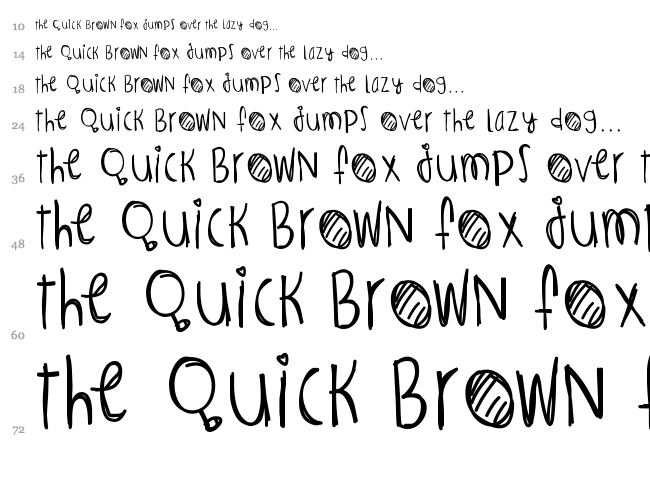 10 the Quick Brown fox jumps over the lazy dog...
14 the Quick Brown fox jumps over the lazy dog...
18 the Quick Brown fox jumps over the lazy dog...
24 the Quick Brown fox jumps over the lazy dog...
36 the Quick Brown fox jumps over t
48 the Quick Brown fox jump
60 the Quick Brown fox
72 the Quick Brown f